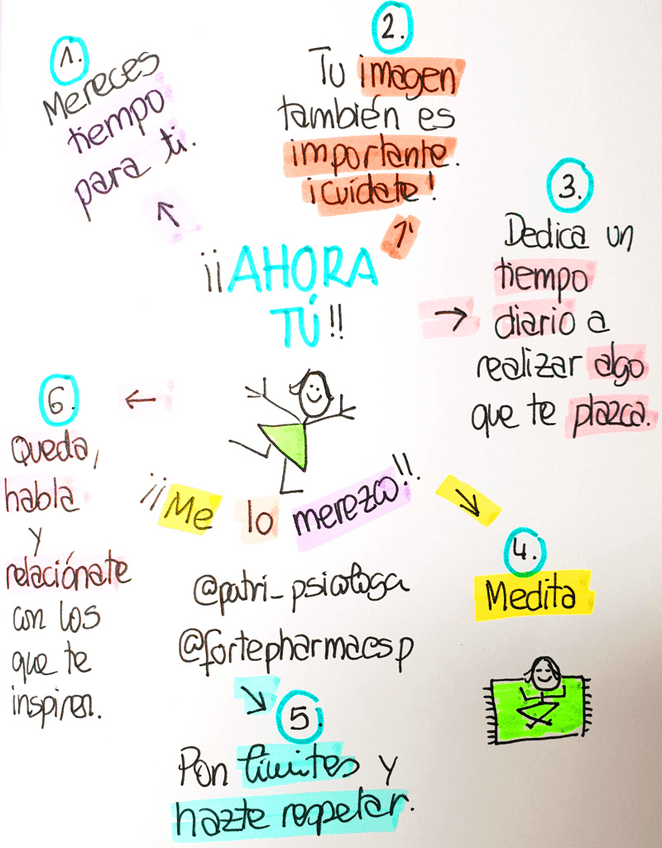 ¡¡AHORA
TÚ!!
1.
Mereces
tiempo
para ti.
2.
Tu imagen
también es
importante.
¡cuídate!
3.
Dedica un
tiempo
diario a
realizar algo
que te plazca.
¡¡Me lo merezco!!
4.
Medita
@patri_psicologa
@fortepharmaesp
5
Pon límites y
hazte respetar.
6.
Queda,
habla
y
relaciónate
con los
que te
inspiren.